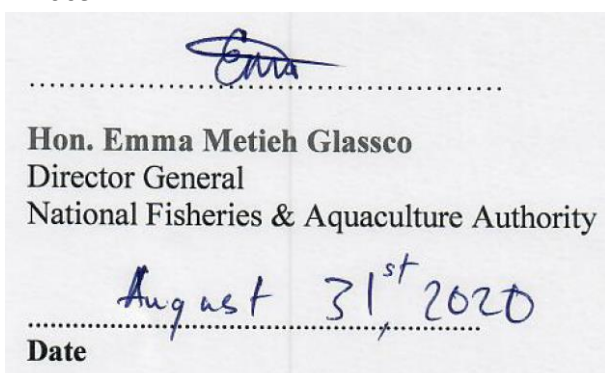 Emma
........................................................
Hon. Emma Metieh Glassco
Director General
National Fisheries & Aquaculture Authority
August 31st, 2020
........................................................
Date